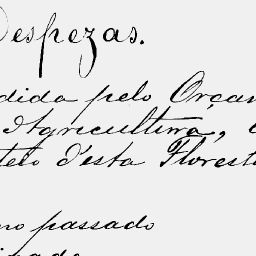 Despezas.
dida pelo Orçam
Agricultura,
teio d'esta Florest
no passado